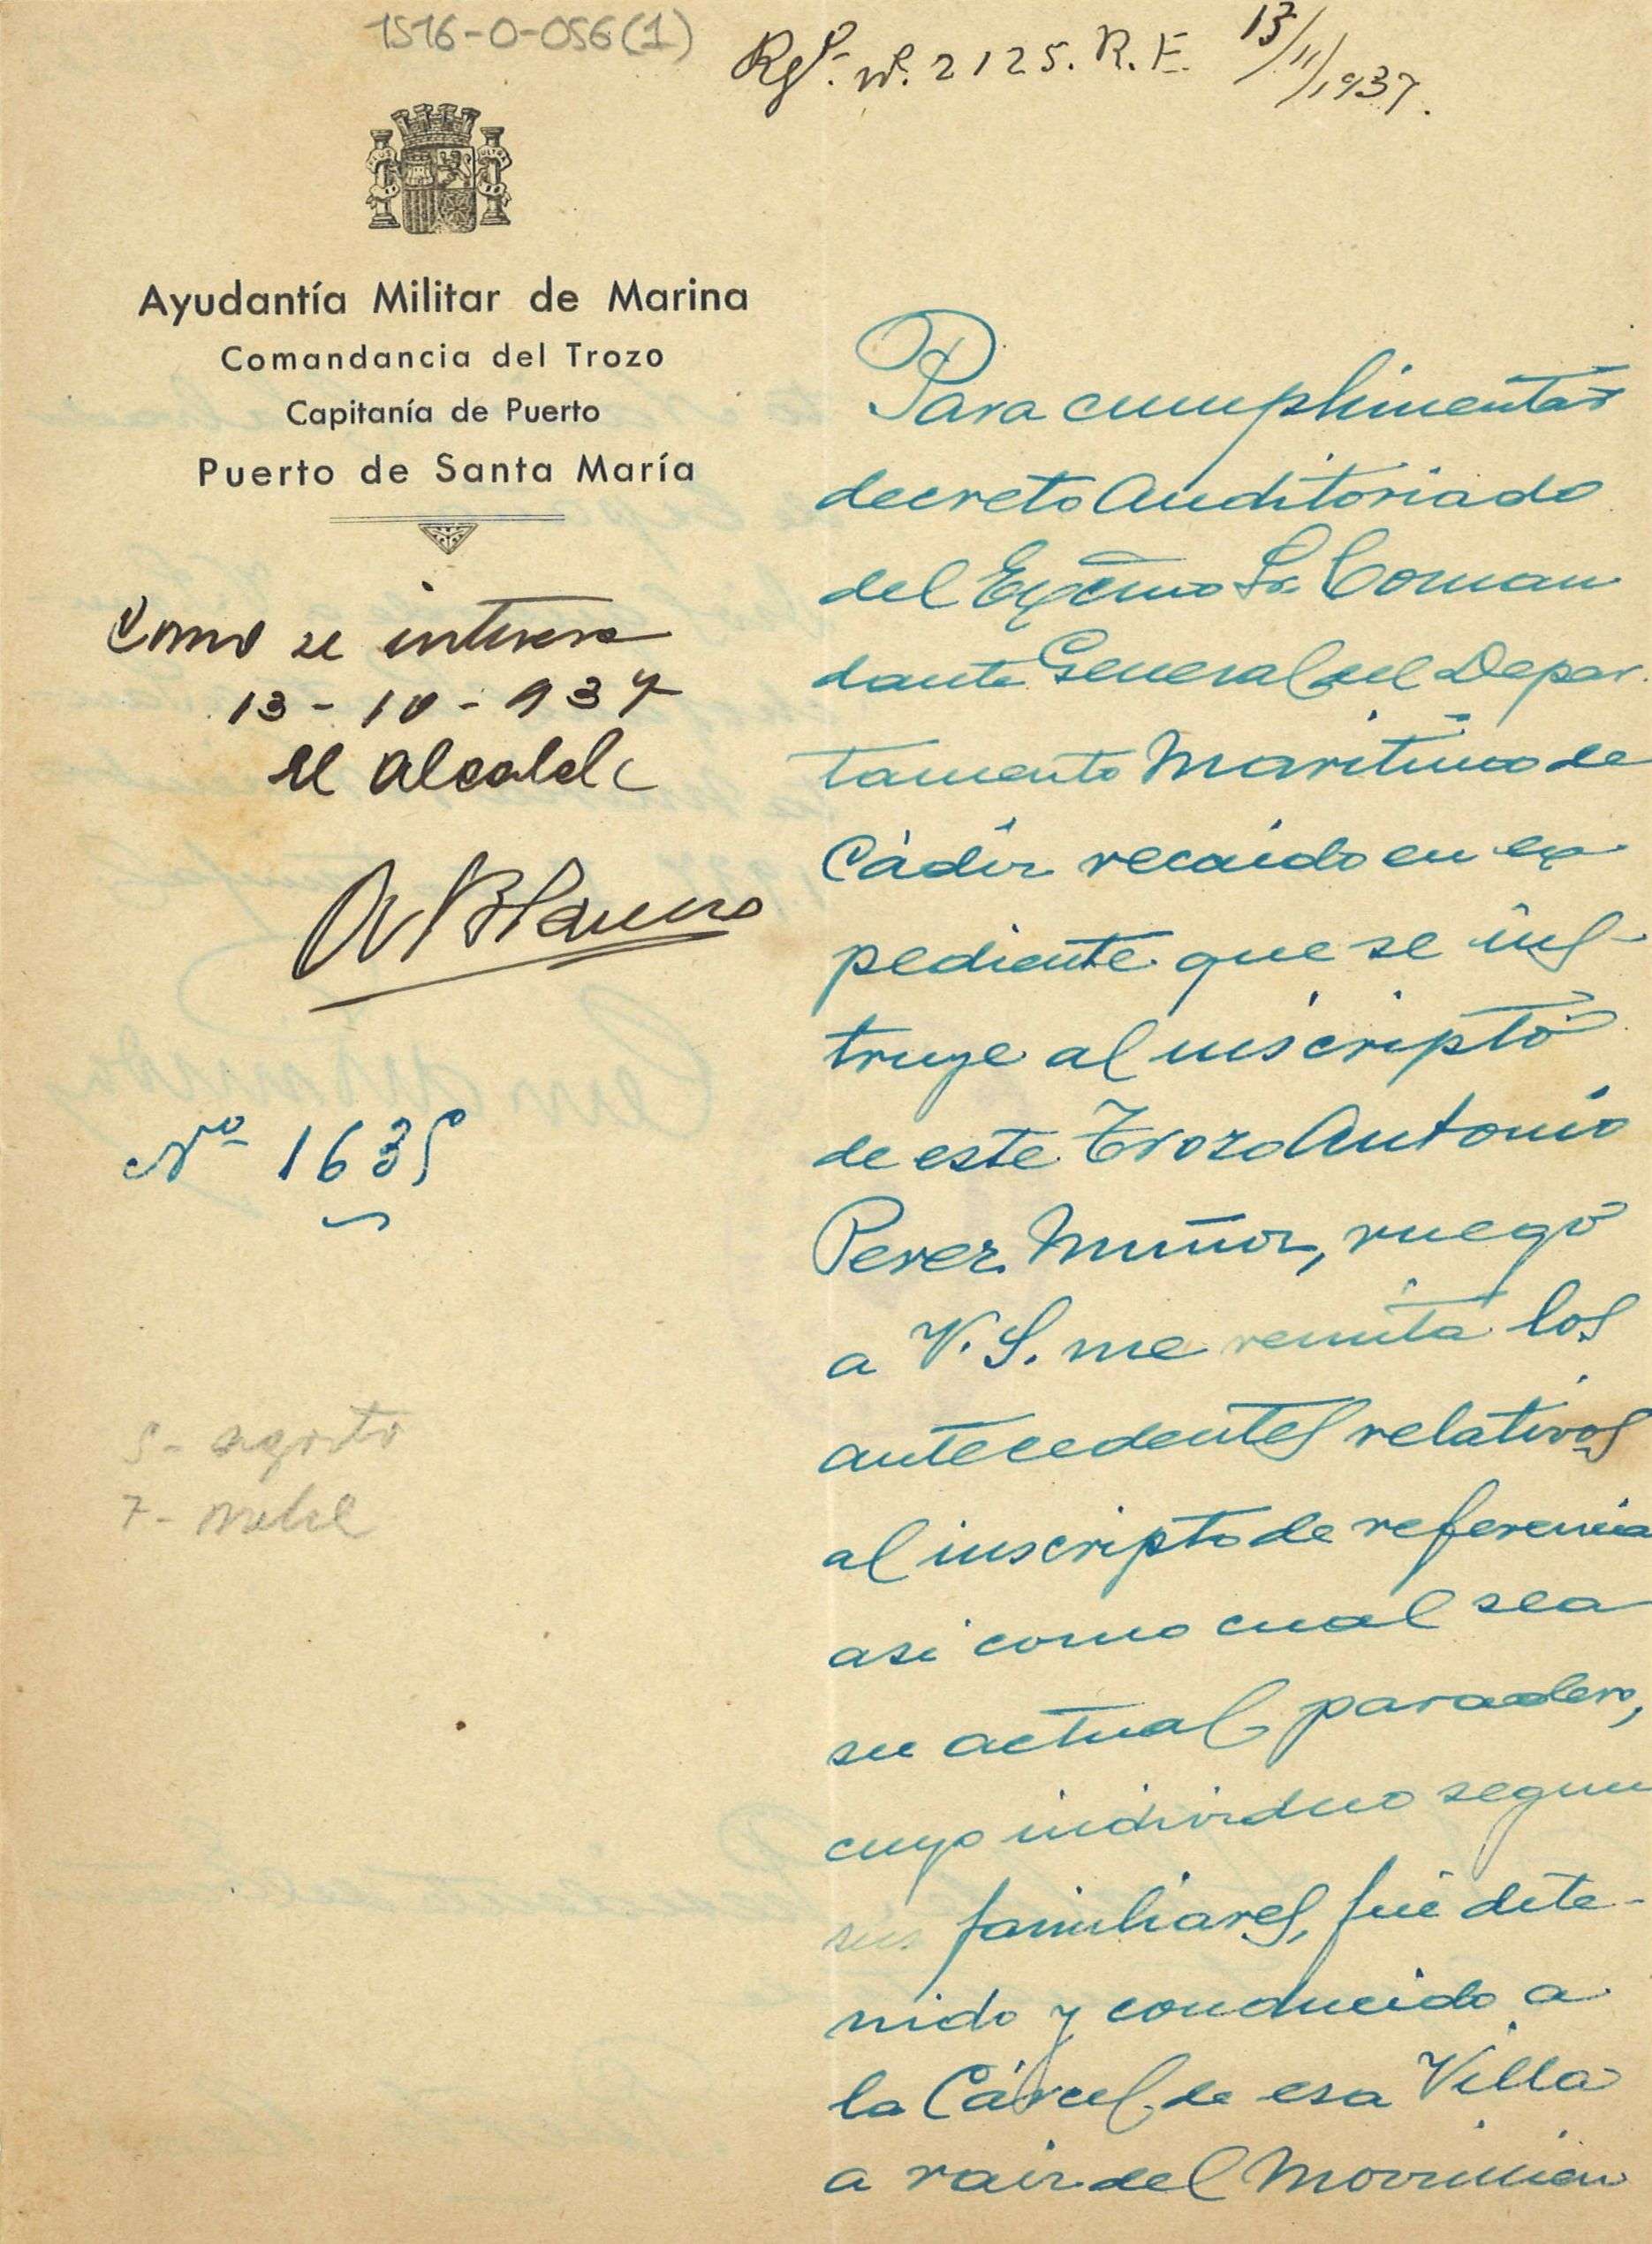 1516-O-056(1)
Rgº. nº. 2125. R.E. 13/11/1937.
PLUS ULTRA
Ayudantía Militar de Marina
Comandancia del Trozo
Capitanía de Puerto
Puerto de Santa María
Como se interesa
13-10-937
El Alcalde
Nº 1635
5- agosto
7-
Para cumplimentar
decreto Auditoriado
del Excmo Sr. Coman
dante General del Depar-
tamento Maritimo de
Cádiz recaido en ex-
pediente que se ins-
truye al inscripto
de este Trozo Antonio
Perez Muñoz, ruego
a V.S. me remita los
antecedentes relativos
al inscripto de referencia
asi como cual sea
su actual paradero,
cuyo individuo segun
sus familiares, fué dete-
nido y conducido a
la Cárcel de esa Villa
a raiz del Movimien